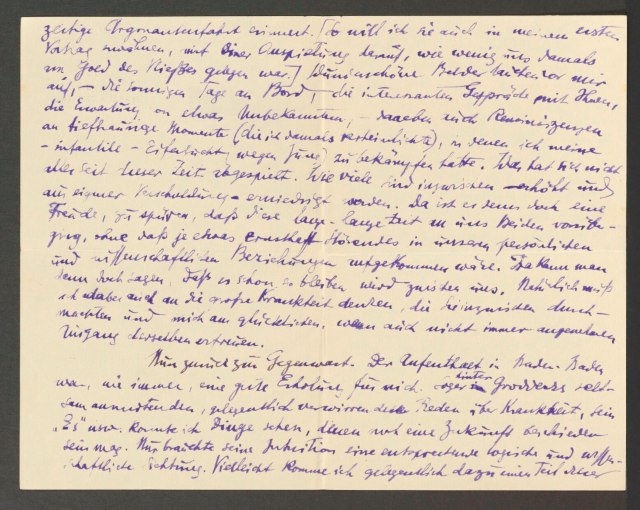 zeitige Argonautenfahrt erinnert. [So will ich Sie auch in meinem ersten
Vortrag erwähnen, mit einer Anspielung darauf, wie wenig uns damals
am Gold des Vließes gelegen war.] Wunderschöne Bilder tauchen vor mir
auf, – die sonnigen Tage an Bord, die interessanten Gespräche mit Ihnen,
die Erwartung von etwas Unbekanntem, – daneben auch Reminiszenzen
an tieftraurige Momente (die ich damals verheimlichte), in denen ich meine
– infantile – Eifersucht wegen Jung zu bekämpfen hatte. Was hat sich nicht
alles seit dieser Zeit abgespielt. Wie viele sind inzwischen erhöht und
aus eigener Verschuldung erniedrigt worden. Da ist es denn doch eine
Freude, zu spüren, daß diese lange – lange Zeit an uns Beiden vorüber-
ging, ohne daß je etwas ernsthaft Störendes in unseren persönlichen
und wissenschaftlichen Beziehungen aufgekommen wäre. Da kann man
denn doch sagen, daß es schon so bleiben wird zwischen uns. Natürlich muß
ich dabei auch an die große Krankheit denken, die Sie inzwischen durch-
machten und mich am glücklichen, wenn auch nicht immer angenehmen
Ausgang derselben erfreuen.
Nun zurück zur Gegenwart. Der Aufenthalt in Baden-Baden
war, wie immer, eine gute Erholung für mich. Sogar hinter Groddecks selt-
sam anmutenden, gelegentlich verwirrenden Reden über Krankheit, sein
„Es" usw. konnte ich Dinge sehen, denen noch eine Zukunft beschieden
sein mag. Nur brauchte seine Intuition eine entsprechende logische und wissen-
schaftliche Sichtung. Vielleicht komme ich gelegentlich dazu einen Teil dieser